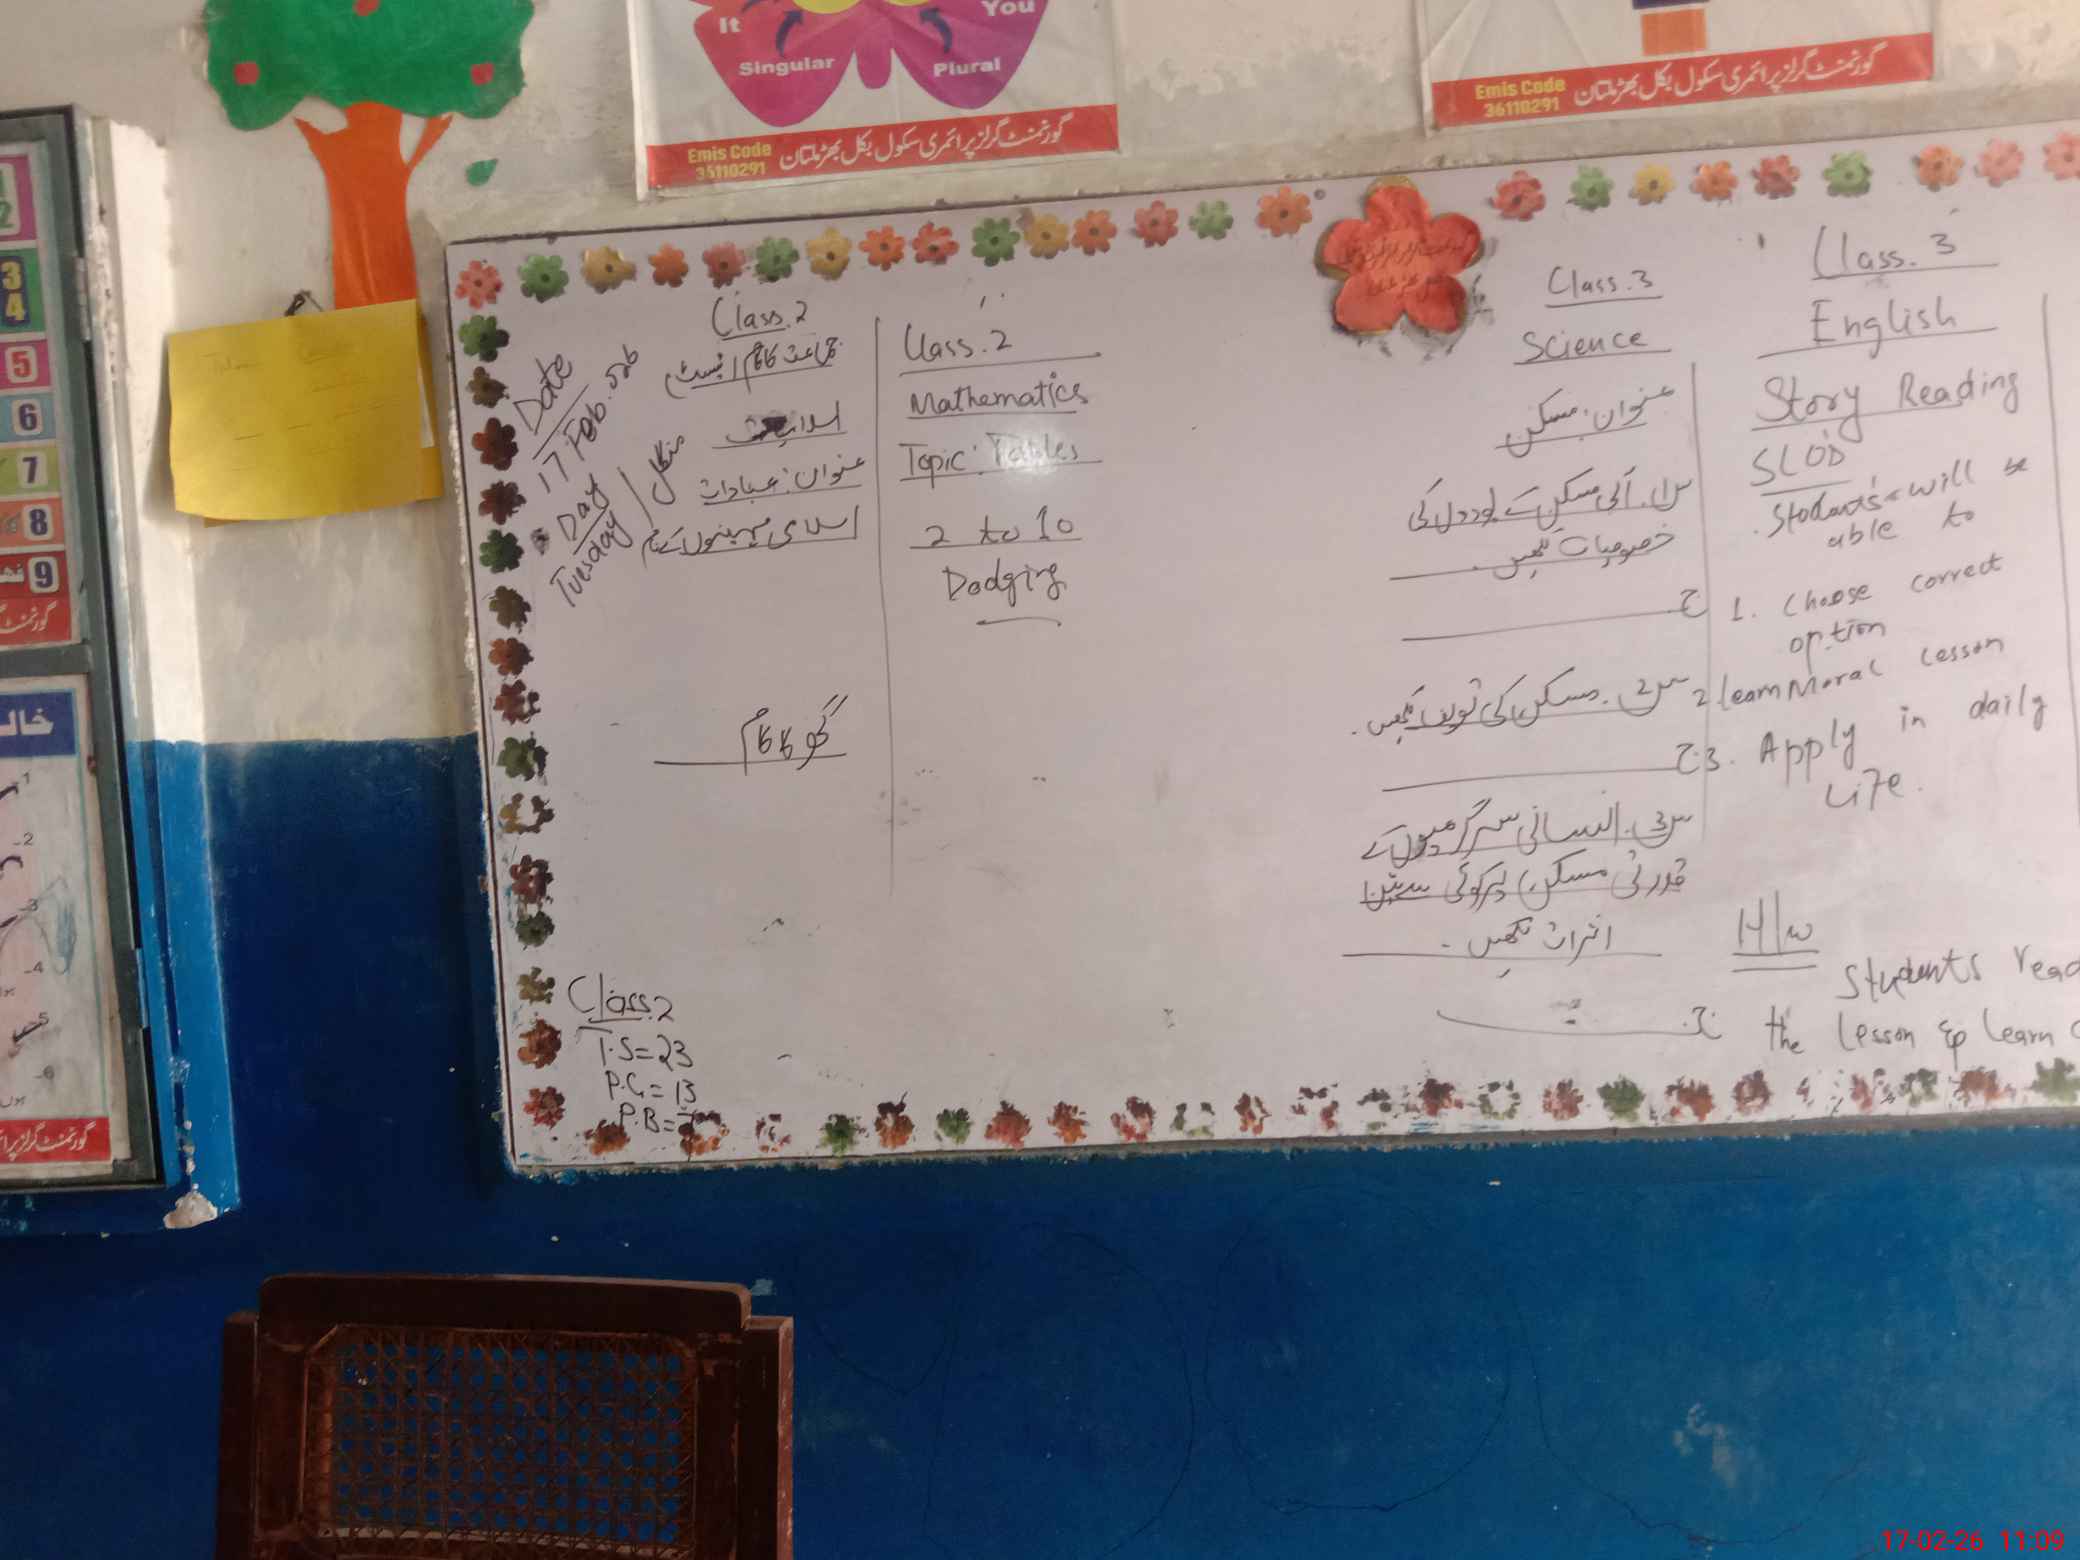 It
You
Singular
Plural
Emis Code
36110291
گورنمنٹ گرلز پرائمری سکول بکل بھڑ ملتان
Emis Code
36110291
گورنمنٹ گرلز پرائمری سکول بکل بھڑ ملتان
2
3
4
5
6
7
8
9
-1
-2
-3
-4
-5
-6
Date
17 Feb.
Day
Tuesday
منگل
Class.2
جماعت کا کام
عنوان: عبادات
اسلامی مہینوں کے نام
گھر کا کام
Class.2
T.S=23
P.G=13
P.B=
Class.2
Mathematics
Topic: Tables
2 to 10
Dodging
Class.3
Science
عنوان: مسکن
س1. آبی مسکن کے پودوں کی
خصوصیات لکھیں.
ج
س2. مسکن کی تعریف لکھیں.
ج
س3. انسانی سرگرمیوں کے
قدرتی مسکن پر کوئی سے تین
اثرات لکھیں.
ج.
Class.3
English
Story Reading
SLOs
Students will be
able to
1. Choose correct
option
2. learn Moral Lesson
3. Apply in daily
Life.
H/w
Students read
the lesson & learn
17-02-26 11:09